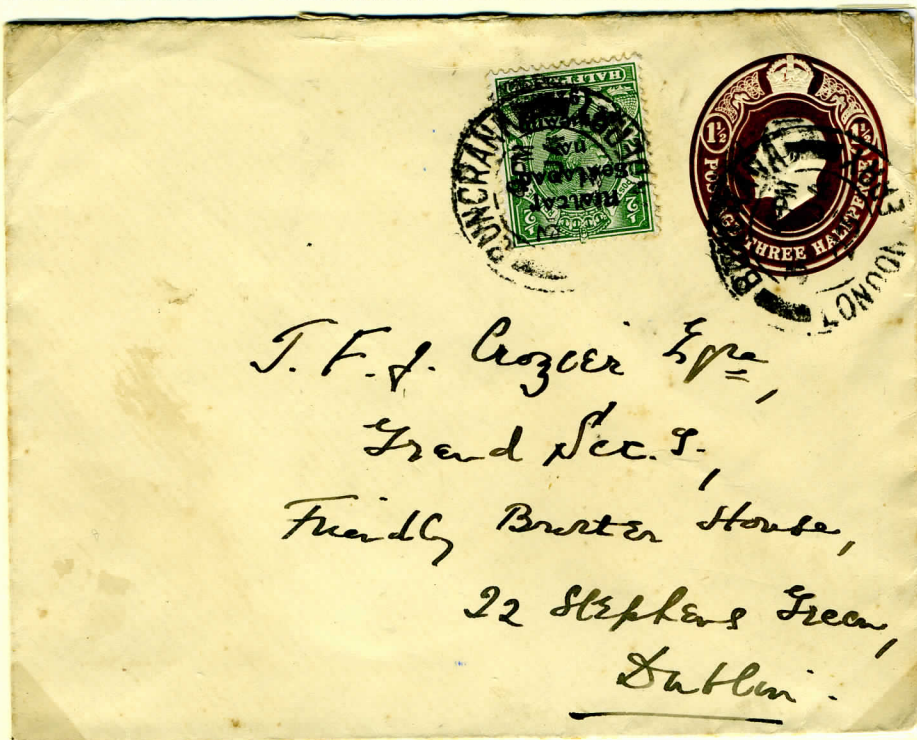 HALFPENNY
Rialtar
Sealadac
½ ½
BUNCRANA
1½ 1½
POSTAGE THREE HALFPENCE
BUNCRANA
COUNTY
T. F. J. Crozier Esqre,
Grand Sec. I.,
Friendly Brother House,
22 Stephens Green,
Dublin.